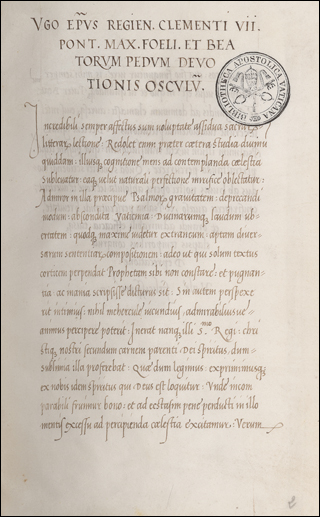 VGO EP̄VS REGIEN. CLEMENTI VII.
PONT. MAX. FOELI. ET BEA
TORVM PEDVM DEVO
TIONIS OSCVLV̄.
BIBLIOTHECA APOSTOLICA VATICANA
Incredibili semper affectus sum uoluptate assidua sacrarū
literarū lectione: Redolet enim præter cætera studia diuinū
quiddam: illiusq; cognitione mens ad contemplanda cælestia
subleuatur: eaq; uelut naturali perfectione mirifice oblectatur:
Admiror in illa præcipue Psalmorū grauitatem: deprecandi
modum: abscondita Vaticinia: Diuinarumq; laudum ub-
ertatem: quodq; maxime uidetur extraneum: aptam diuer-
sarum sententiarū compositionem: adeo ut qui solum textus
corticem perpendat Prophetam sibi non constare: et pugnan-
tia ac mania scripsisse dicturus sit: Sin autem perspexe
rit intimius: nihil mehercule iucundius, admirabiliusue
animus percipere poterit: Inerat nanq; illi S.mo Regi: chri
stiq; nostri secundum carnem parenti: Dei spiritus, dum
sublimia illa proferebat: Quæ dum legimus: exprimimusq;
ex nobis idem spiritus qui Deus est loquitur: Vnde incom
parabili fruimur bono: et ad ecstasim pene perducti in illo
mentis excessu ad percipienda cælestia excitamur: Verum